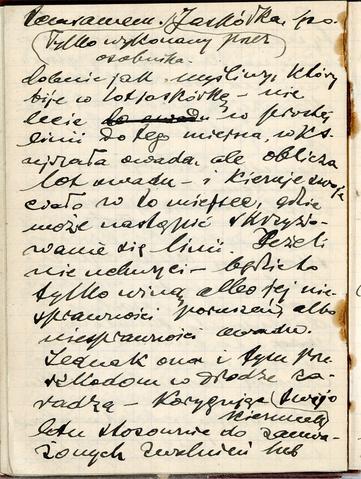 Jaskółka, po-
(Tylko wykonany przez
osobnika.
dobnie jak myśliwy, który
bije w lot jaskółkę – nie
lecie w prostej
linii do tego miejsca, w k.
ujrzała owada, ale oblicza
lot owadu – i kieruje swoje
ciało w to miejsce, gdzie
może nastąpić skrzyżo-
wanie się linii. Jeżeli
nie uchwyci – będzie to
tylko wina albo jej nie-
sprawności poruszeń, albo
niesprawności owadu.
Jednak ona i tym prze-
szkodom w drodze za-
radza – Koryguje (swojo
kierunek)
lotu stosownie do zauwa-
żonych zwolnień lub